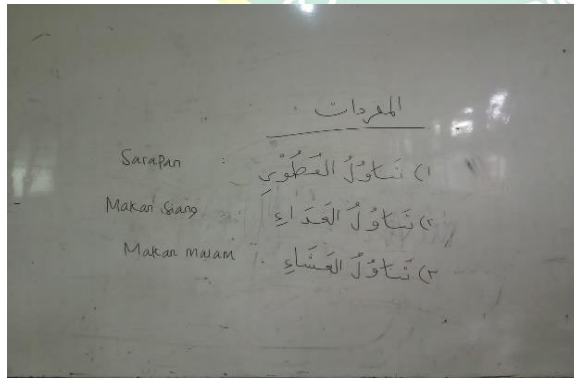 المفردات
١) تَنَاوُلُ الفُطُوْرِ : Sarapan
٢) تَنَاوُلُ الغَدَاءِ : Makan Siang
٣) تَنَاوُلُ العَشَاءِ : Makan malam